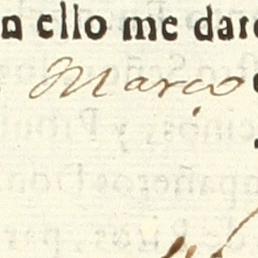 n ello me dar
Março